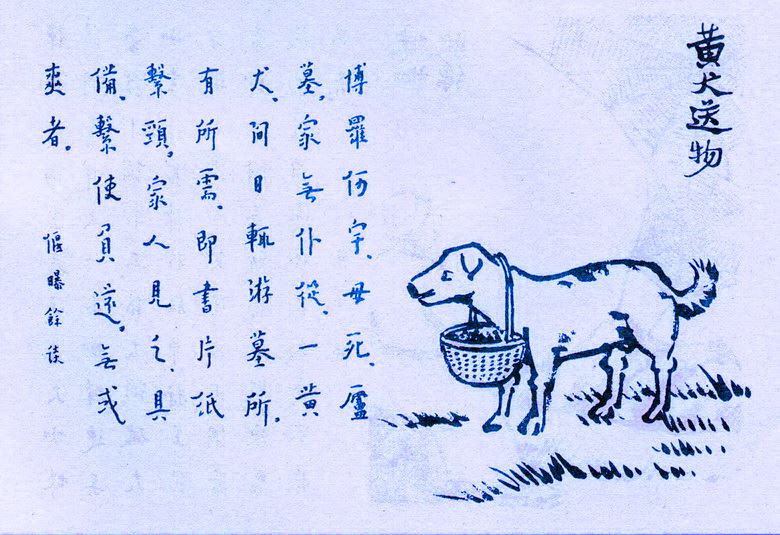 黃犬送物
博羅何宇、母死、廬
墓。家無仆從、一黃
犬、间日輒游墓所.
有所需、即書片紙
繫頸。家人見之、具
備、繫使負還。無或
爽者。
偃曝餘談